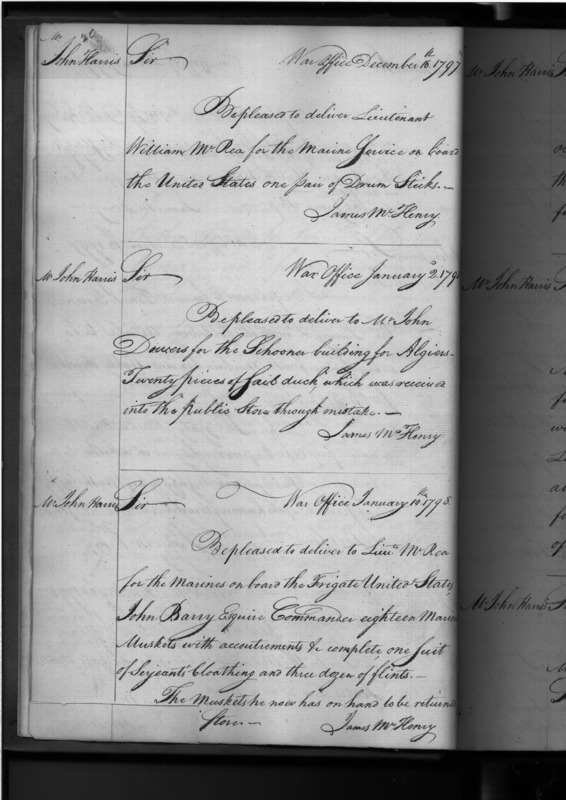 Mr. John Harris
Sir War Office December 16th. 1797
Be pleased to deliver Lieutenant
William McRea for the Marine Service on board
the United States one pair of Drum Sticks.—
James McHenry
Mr. John Harris
Sir War Office January 2. 1798
Be pleased to deliver to Mr. John
Doucers for the Schooner building for Algiers-
Twenty pieces of Sail duck which was received
into the public Store through mistake.—
James McHenry
Mr. John Harris
Sir War Office January 10th. 1798.
Be pleased to deliver to Lieut. McRea
for the Marines on board the Frigate United States
John Barry Esquire Commander eighteen Marine
Muskets with accoutrements & complete one suit
of Serjeants Cloathing and three dozen of flints.—
The Muskets he now has on hand to be returned
Store— James McHenry
Mr. John Harris
Mr. John Harris
Mr. John Harris